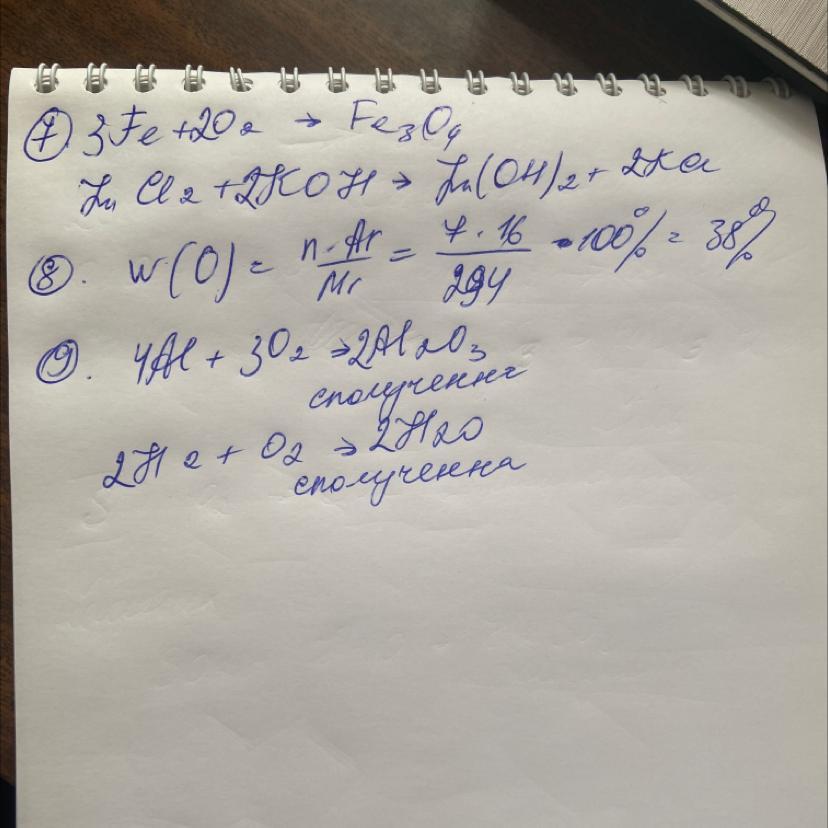 7. 3Fe + 2O2 → Fe3O4
ZnCl2 + 2KOH → Zn(OH)2 + 2KCl
8. W(O) = n·Ar/Mr = 7·16/294 · 100% = 38%
9. 4Al + 3O2 → 2Al2O3
сполучення
2H2 + O2 → 2H2O
сполучення